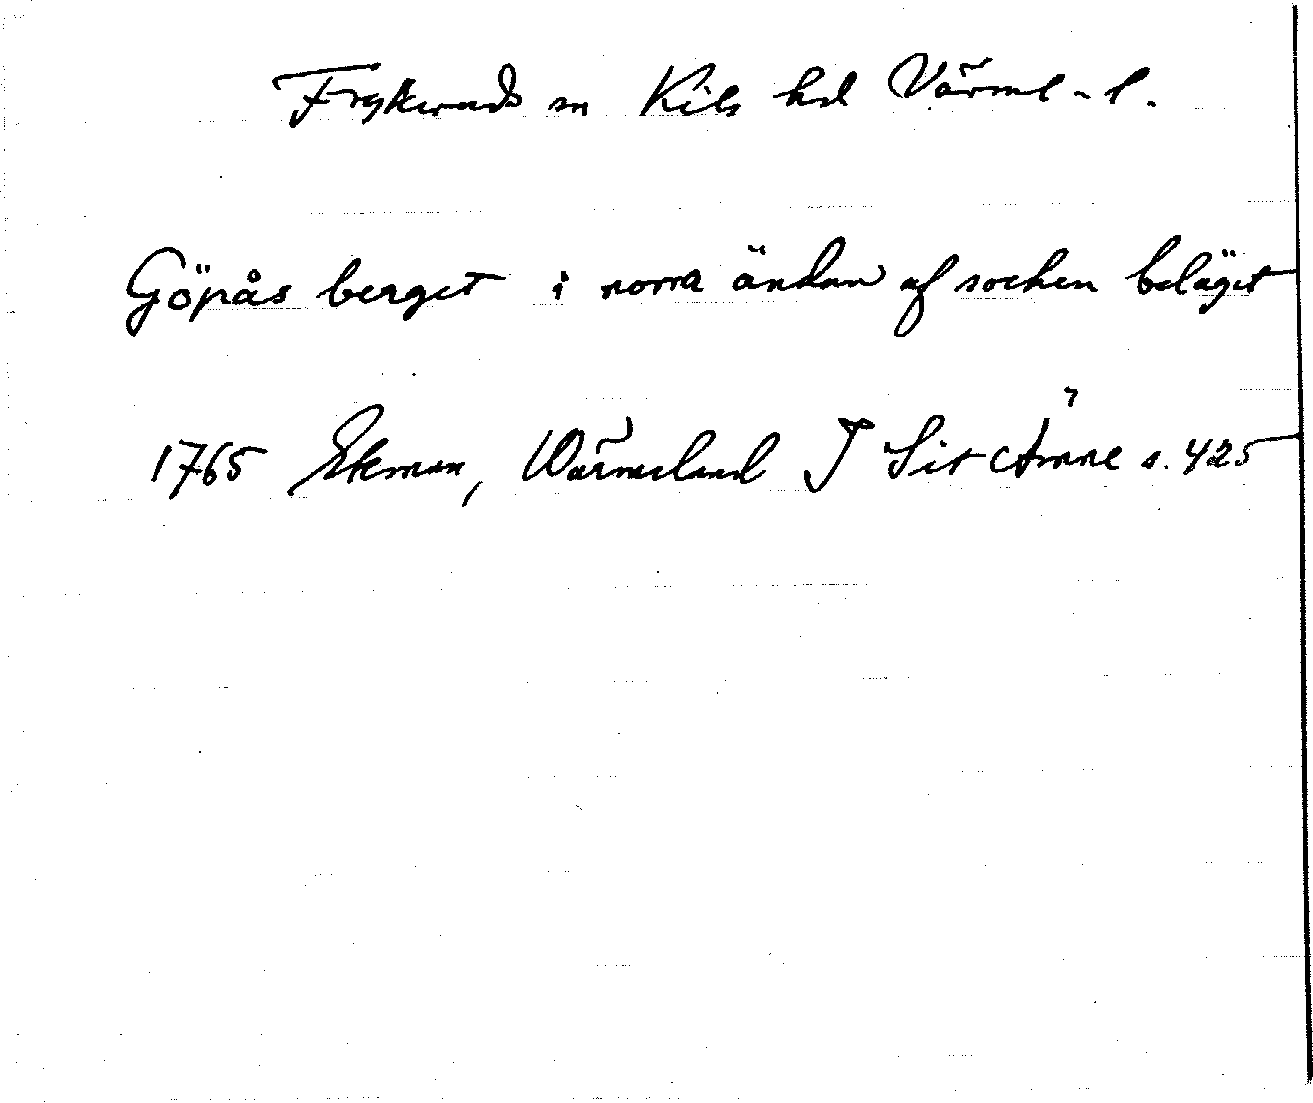 Frykeruds sn Kils hd Värml-l.
Göpås berget i norra ändan af socken beläget
1765 Ekman, Wärmeland I Sit Ämne s. 425